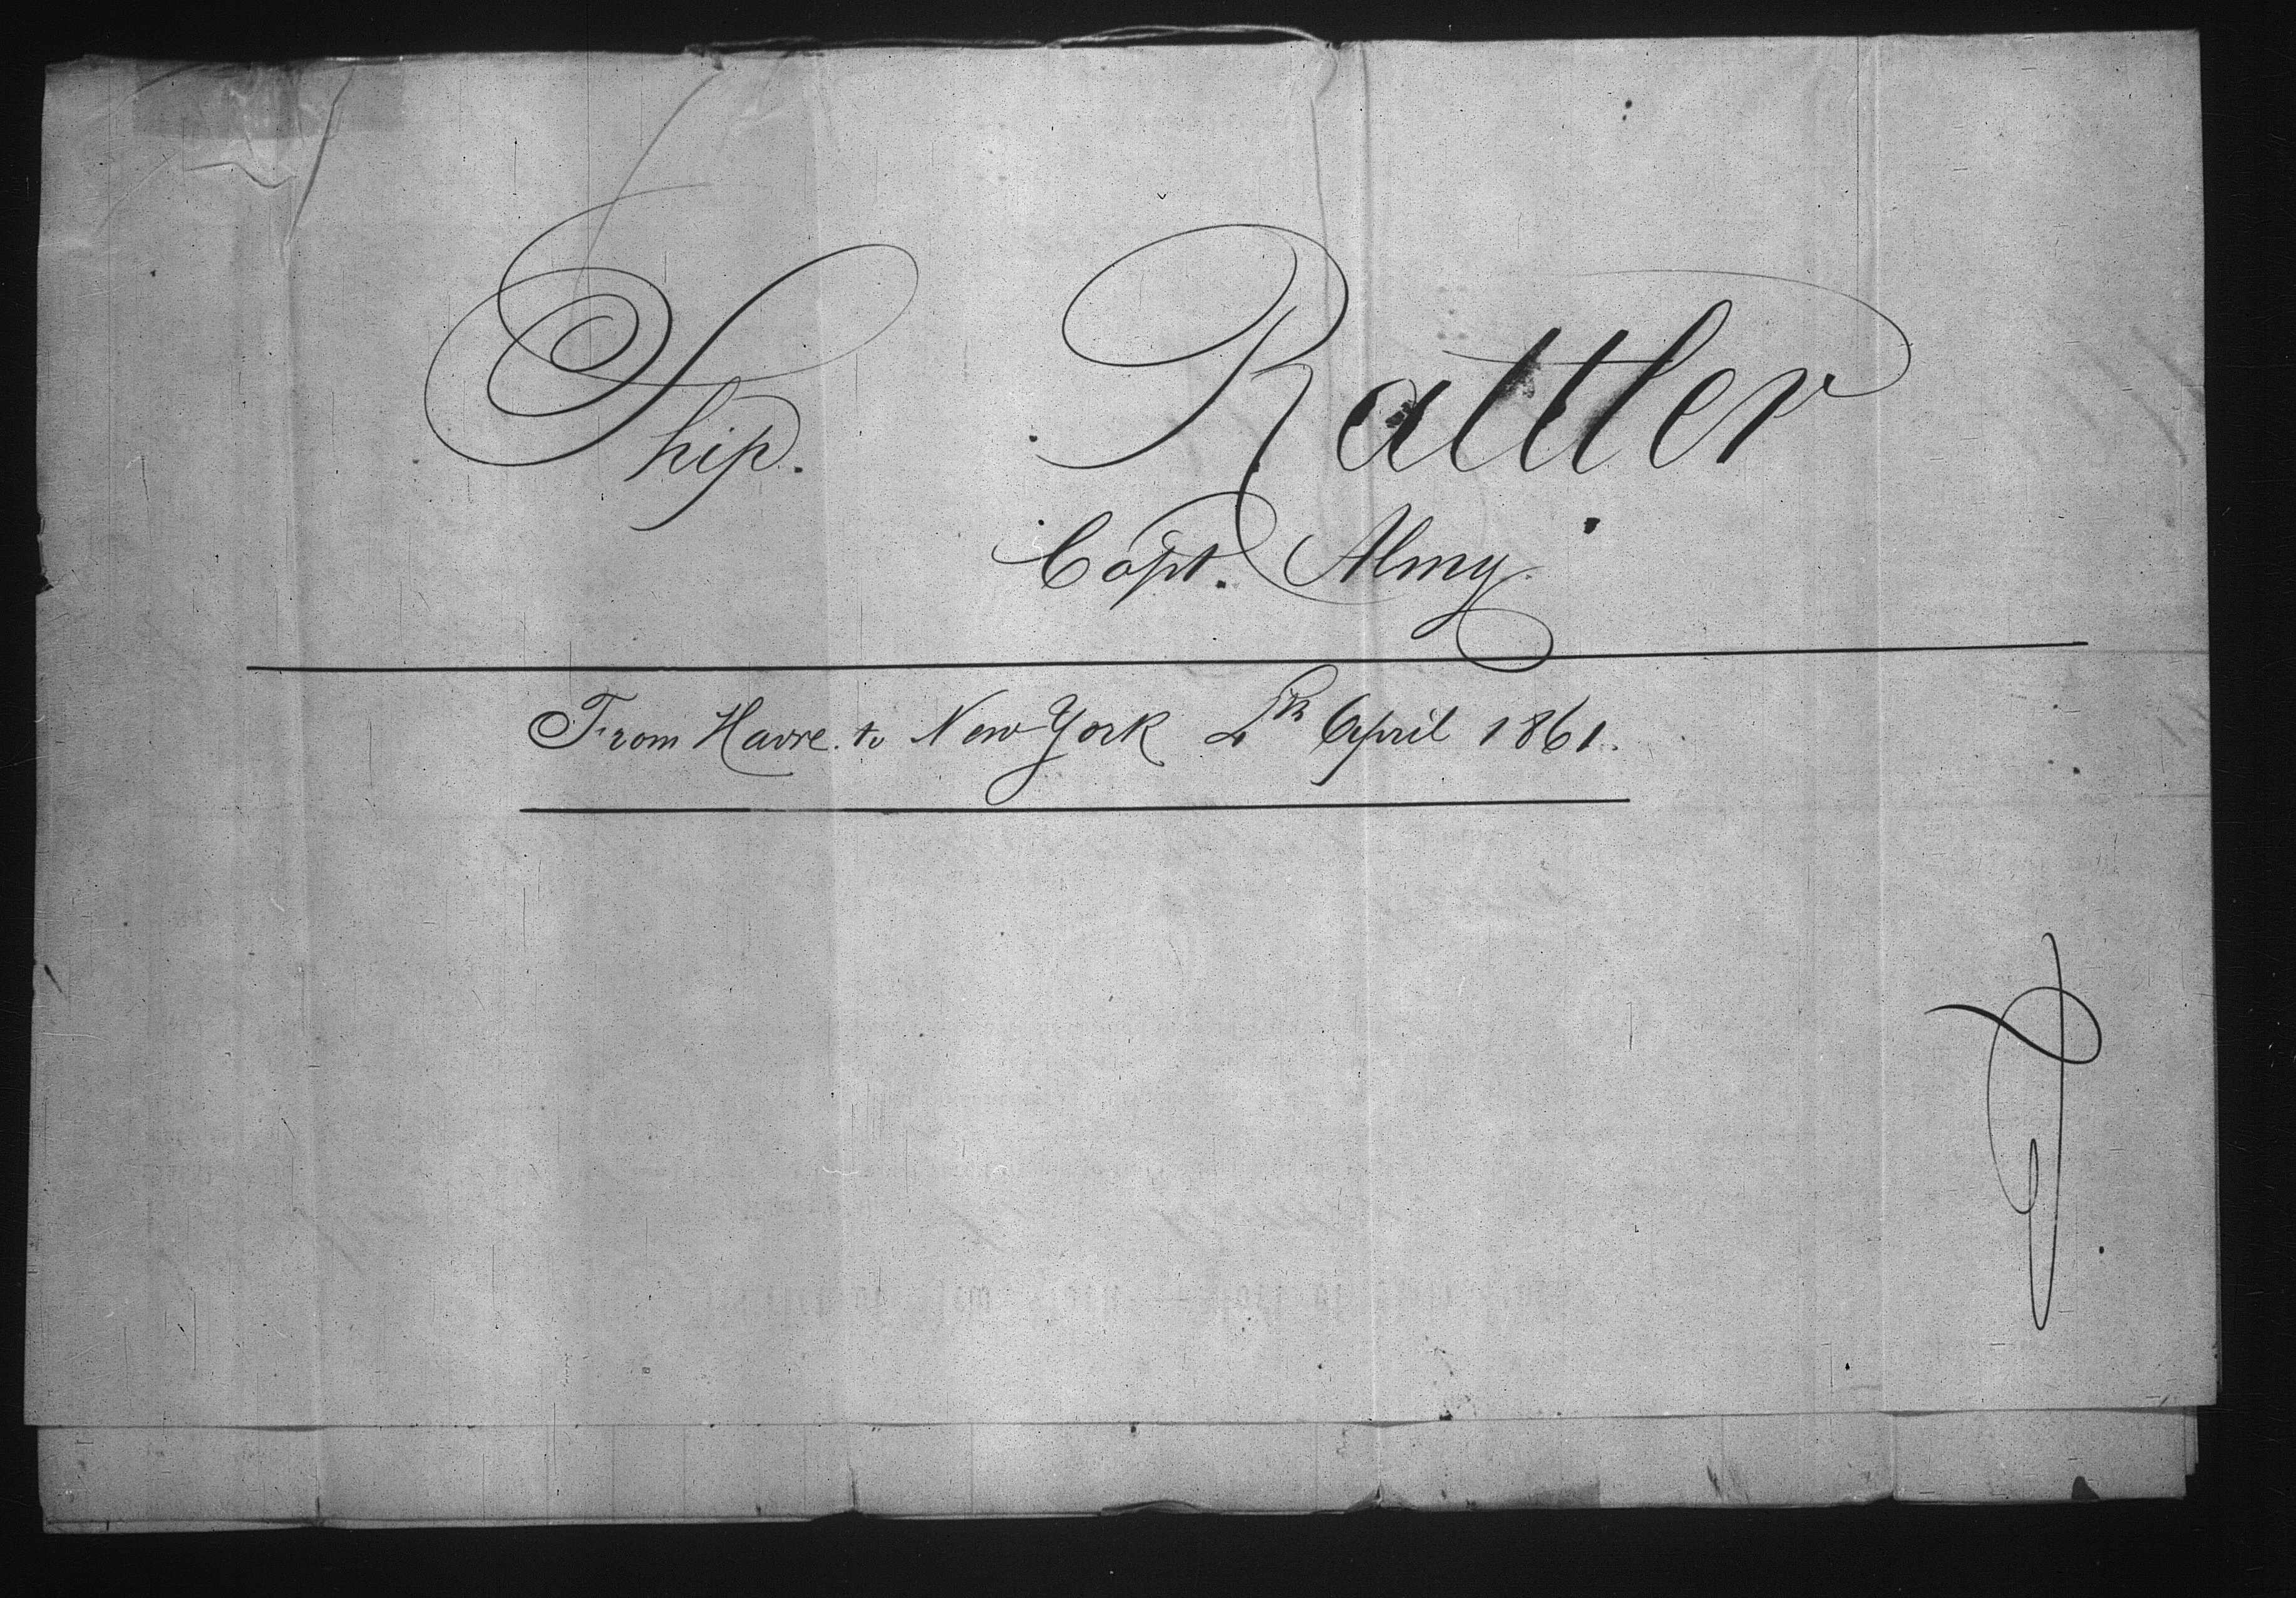 Ship. Rattler
Capt. Almy
From Havre to New York 4th April 1861.